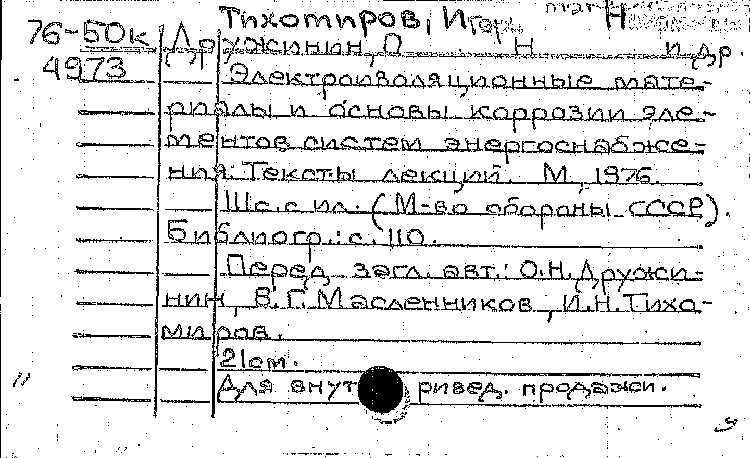 Тихомиров, Игорь Н
76-50к Дружинин, О Н и др.
4973 Электроизоляционные мате-
риалы и основы коррозии эле-
ментов систем энергоснабже-
ния: Тексты лекций. М., 1976.
111с. с ил. (М-во обороны СССР).
Библиогр.: с. 110.
Перед загл. авт.: О.Н. Дружи-
нин, В.Г. Масленников, И.Н. Тихо-
миров.
21см.
Для внут ривед. продажи.